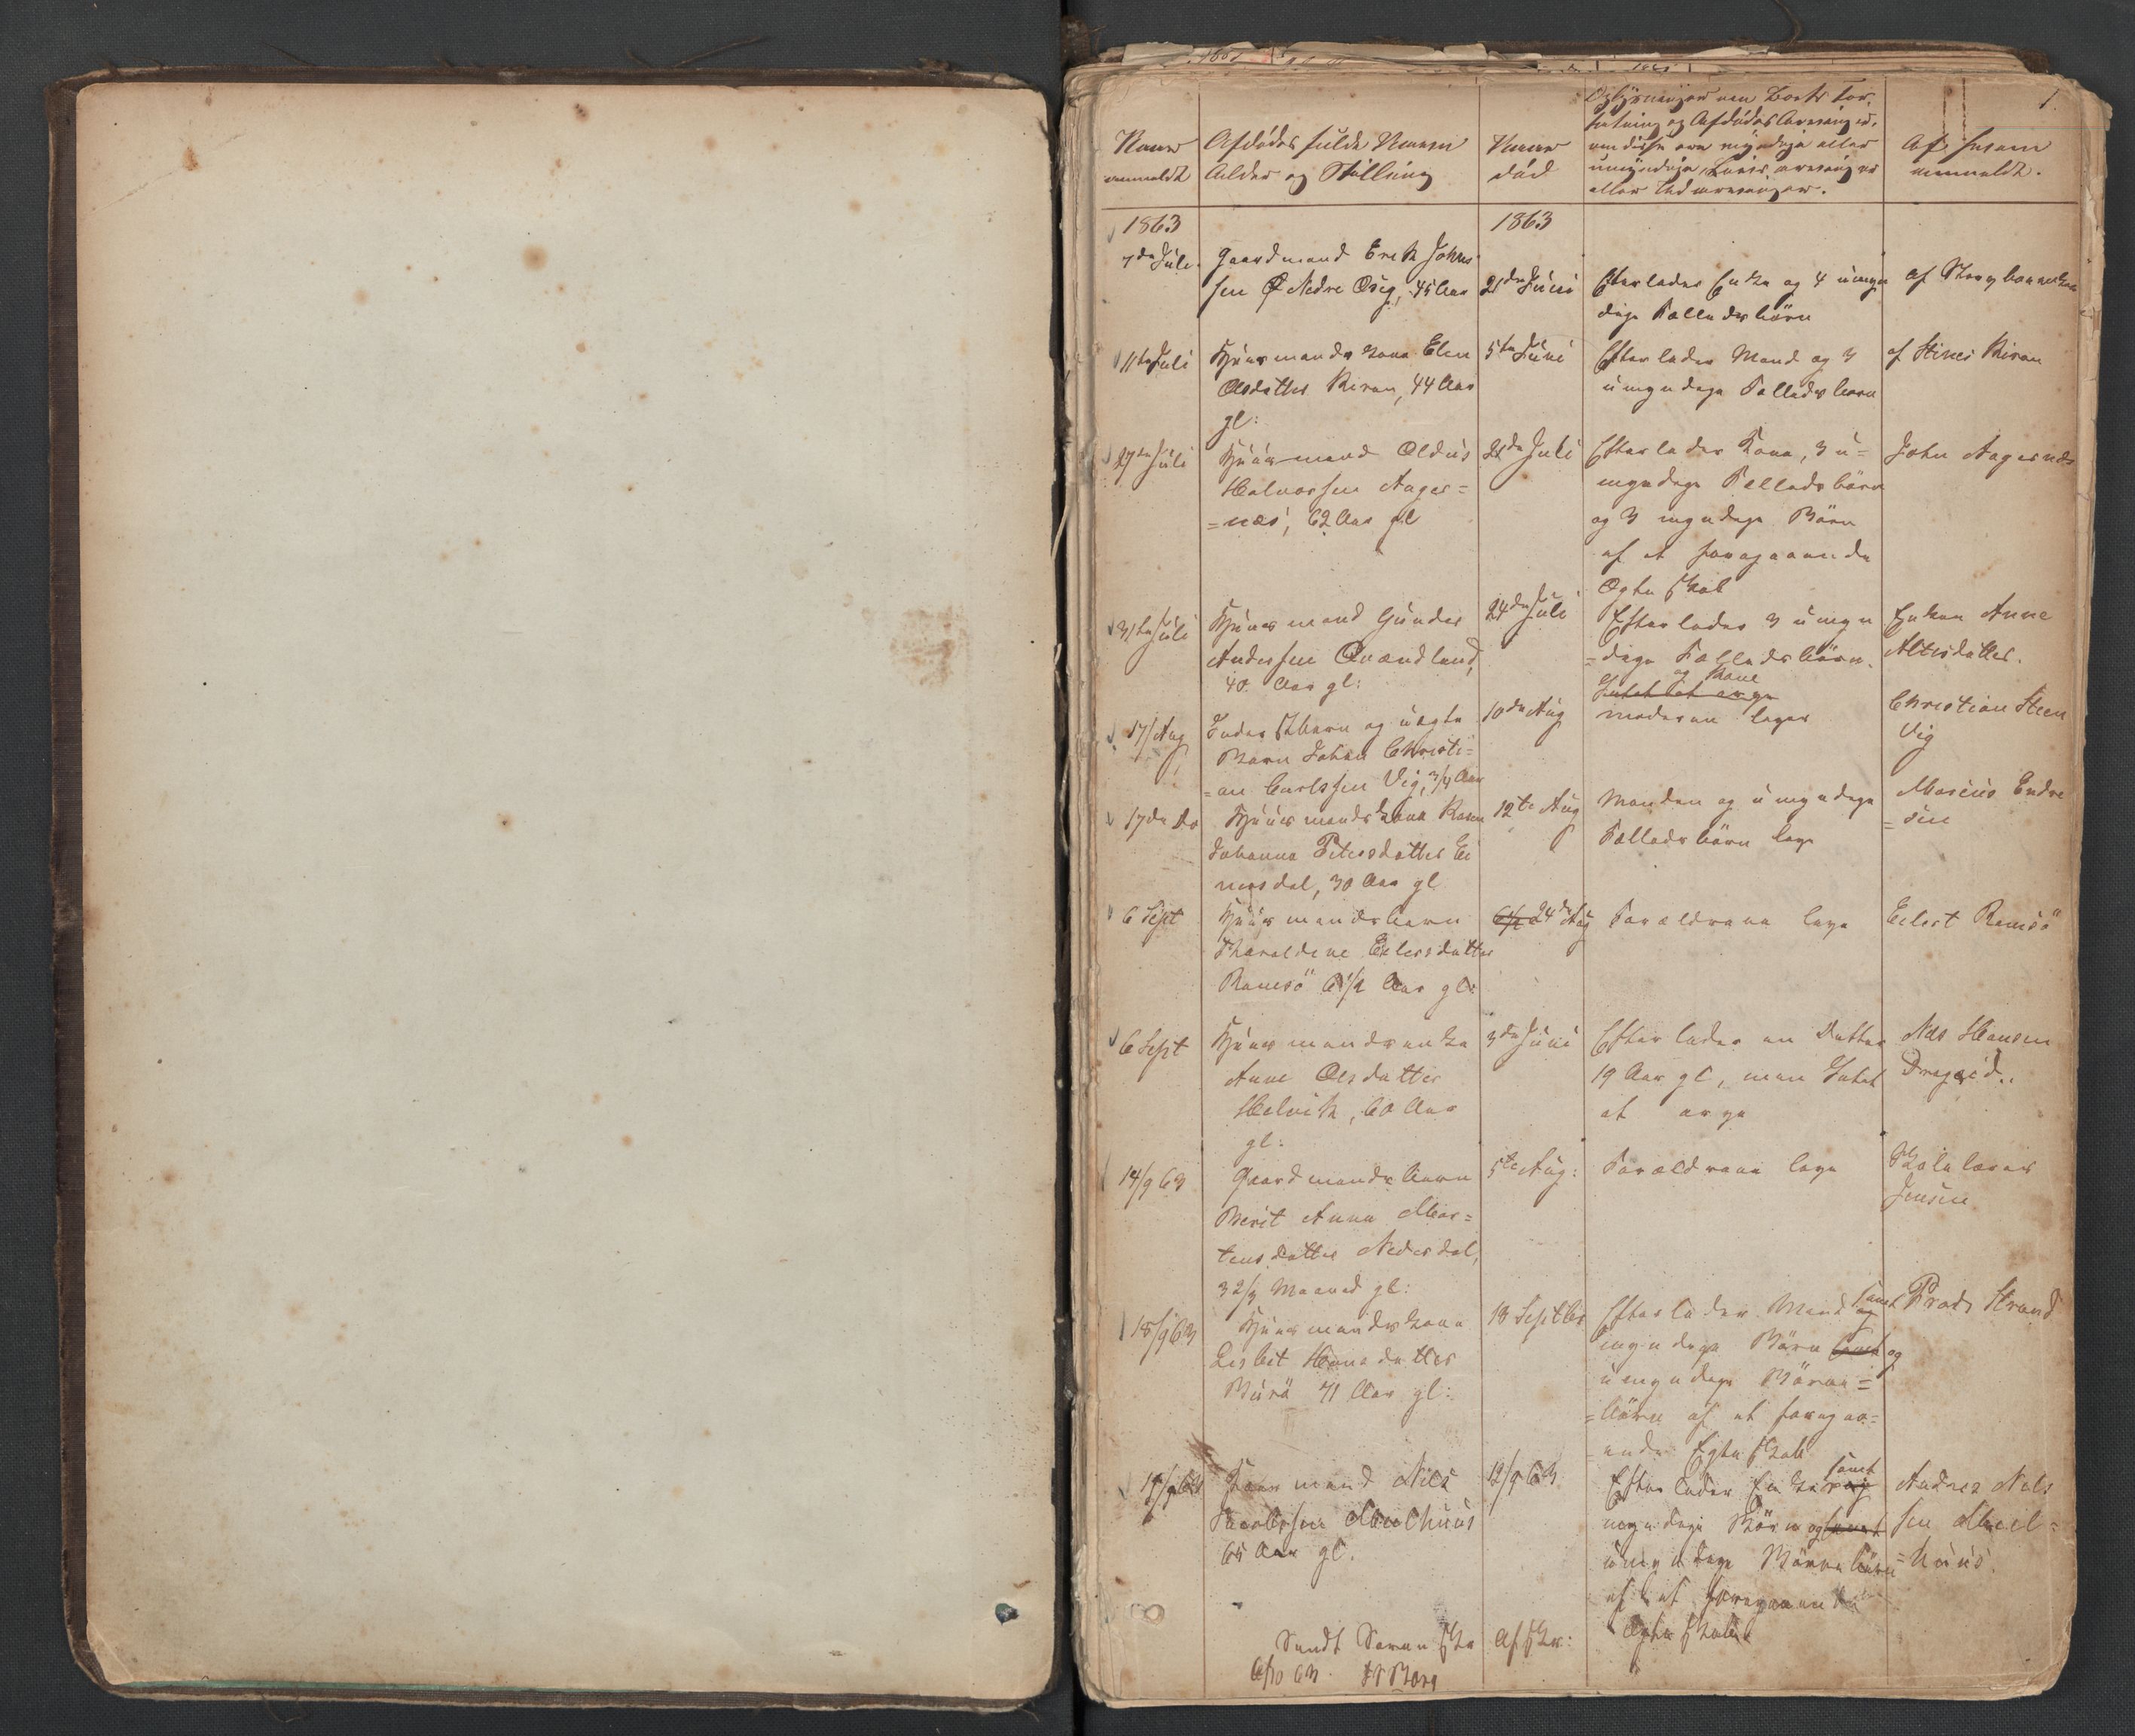 1
Naar
anmeldt
Afdödes fulde Navn
Alder og Stilling
Naar
död
Oplysninger om Boets For-
fatning og Afdödes Arvinger,
om disse ere myndige eller
umyndige, Livsarvinger
eller Udarvinger.
Af hvem
anmeldt.
1863
1863
7de Juli
Gaardmand Erik Johns
sen Nedre Osig, 45 Aar
21de Juni
Efterlader Enke og 4 umyn
dige Fælledsbörn
af
11te Juli
Huusmands Kone Elen
Olsdatter Kiran, 44 Aar
gl:
5te Juni
Efterlader Mand og 3
umyndige Fælledsbörn
af Kiran
27de Juli
Huusmand Oldus
Halvorsen Auger=
=næs, 62 Aar gl
22de Juli
Efterlader Kone, 3 u=
myndige Fælledsbörn
og 3 myndige Börn
af et foregaaende
Ægteskab
John Augernæs
31te Juli
Huusmand Gunder
Andersen Qvandland,
40 Aar gl:
24de Juli
Efterlader 3 umyn
=dige Fælledsbörn.
og Kone
Enken Anne
Altersdatter.
17/Aug
Inderstbarn og uægte
Barn Johan Christi=
=an Carlssen Vig, 3/4 Aar
10de Aug
Intet at arve
moderen lever
Christian Steen
Vig
17de Do
Huusmandskone Karen
Johanna Petersdatter Ei
nersdal, 30 Aar gl
12te Aug
Manden og umyndige
Fælledsbörn leve
Marius Endre
=sen
6 Sept
Huusmandsbarn
Tharaldine Eilersdatter
Ramsö 6 1/2 Aar gl:
24de Aug
Forældrene leve
Eilert Ramsö
6 Sept
Huusmandsenke
Anne Olsdatter
Helvik, 60 Aar
gl:
3de Juni
Efterlader en Datter
19 Aar gl, men Intet
at arve
Nils Hansen
Drageid.
14/9 63
Gaardmandsbarn
Berit Anna Mor=
tensdatter Nedersdal,
3 2/3 Maaned gl:
5te Aug:
Forældrene leve
Skolelærer
Jensen
18/9 63
Huusmandskone
Lisbet Hansdatter
Burö 71 Aar gl:
18 Septbr
Efterlader Mand samt
myndige Börn samt og
umyndige Börne=
=börn af et foregaa=
=ende Egteskab
Frods Strand
18/9 63
Huusmand Nils
Jacobsen Meelhuus
65 Aar gl.
12/9 63
Efterlader Enke samt
myndige Börn og samt
umyndige Börnebörn
af et foregaaende
Ægteskab
Andreas Nils
sen Meel=
=huus.
Sendt Sorenskr
Afskr:
6/10 63